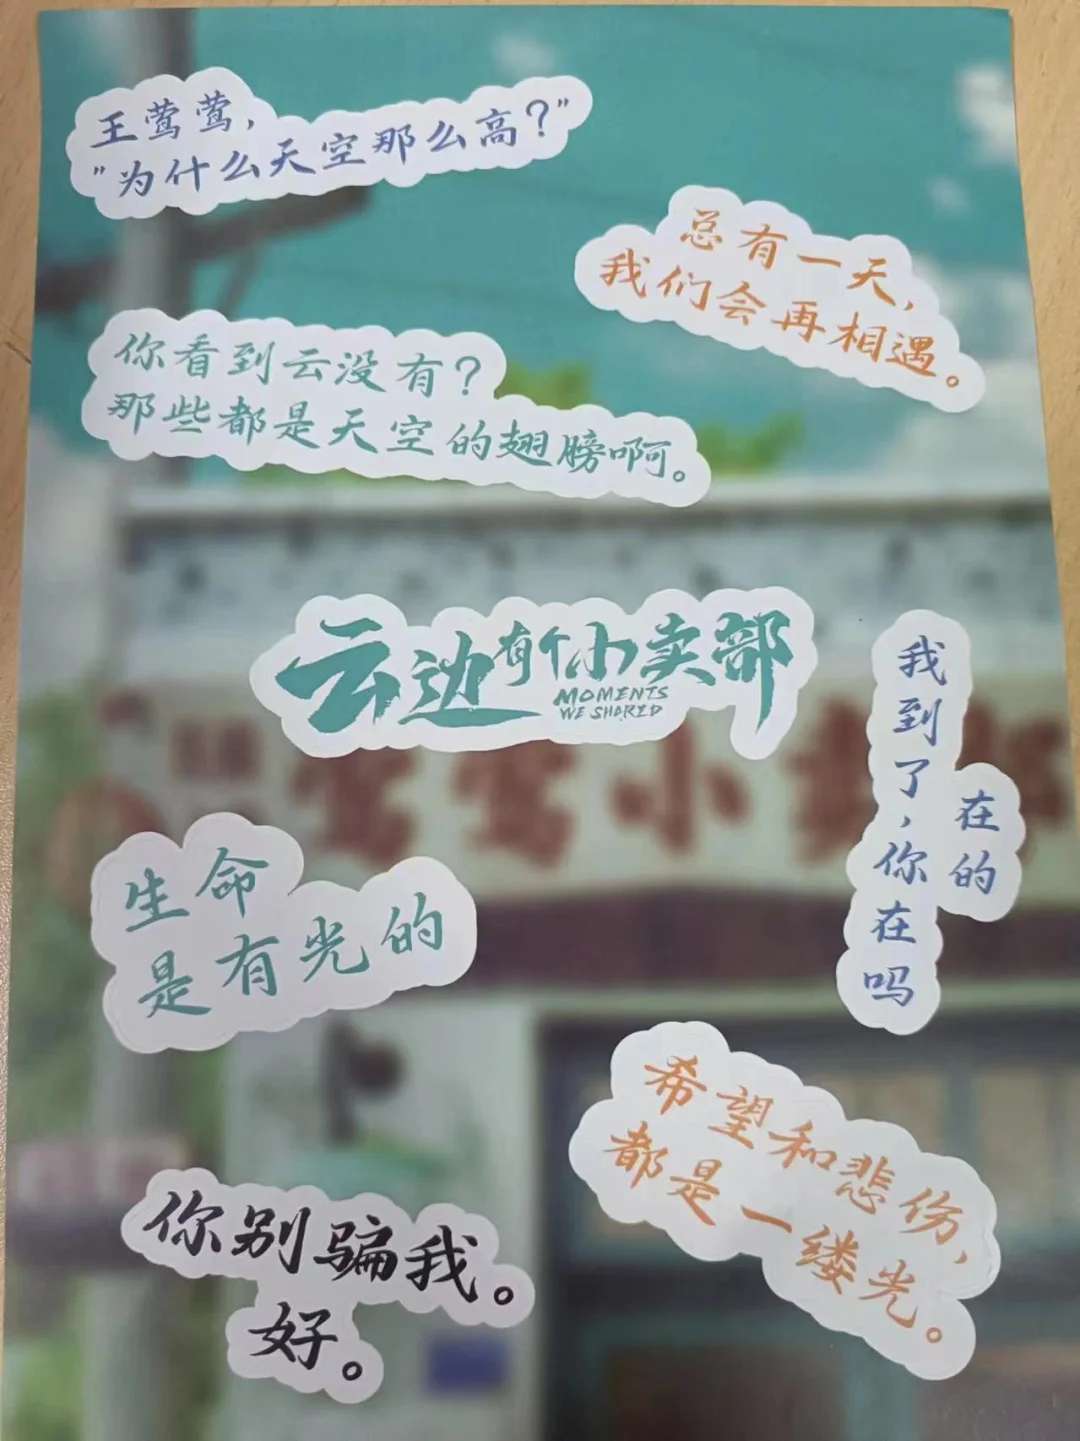 王莺莺，
"为什么天空那么高？"
总有一天，
我们会再相遇。
你看到云没有？
那些都是天空的翅膀啊。
云边有个小卖部
MOMENTS
WE SHARED
我到了，你在吗
在的
生命
是有光的
希望和悲伤，
都是一缕光。
你别骗我。
好。